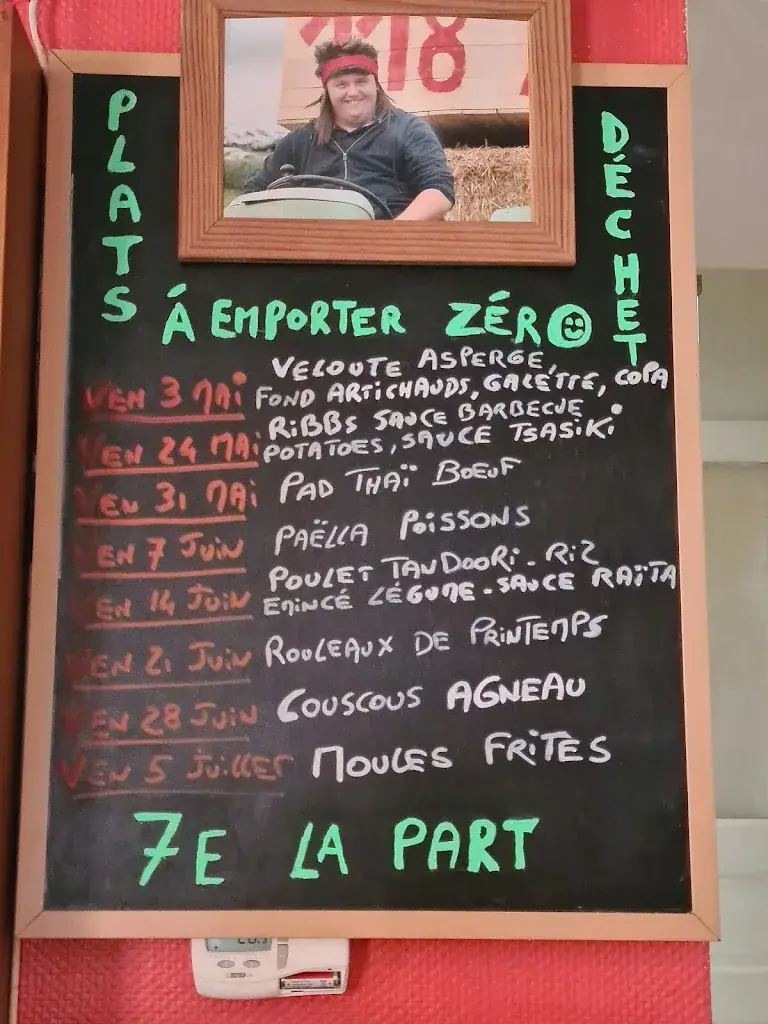 118
PLATS
DÉCHET
Á EMPORTER ZÉRO
VELOUTE ASPERGE,
VEN 3 MAI FOND ARTICHAUDS, GALETTE, COPA
RIBBS SAUCE BARBECUE
VEN 24 MAI POTATOES, SAUCE TSASIKI
VEN 31 MAI PAD THAÏ BOEUF
VEN 7 JUIN PAËLLA POISSONS
POULET TANDOORI - RIZ
VEN 14 JUIN EMINCÉ LÉGUME - SAUCE RAÏTA
VEN 21 JUIN ROULEAUX DE PRINTEMPS
VEN 28 JUIN COUSCOUS AGNEAU
VEN 5 JUILLET MOULES FRITES
7E LA PART